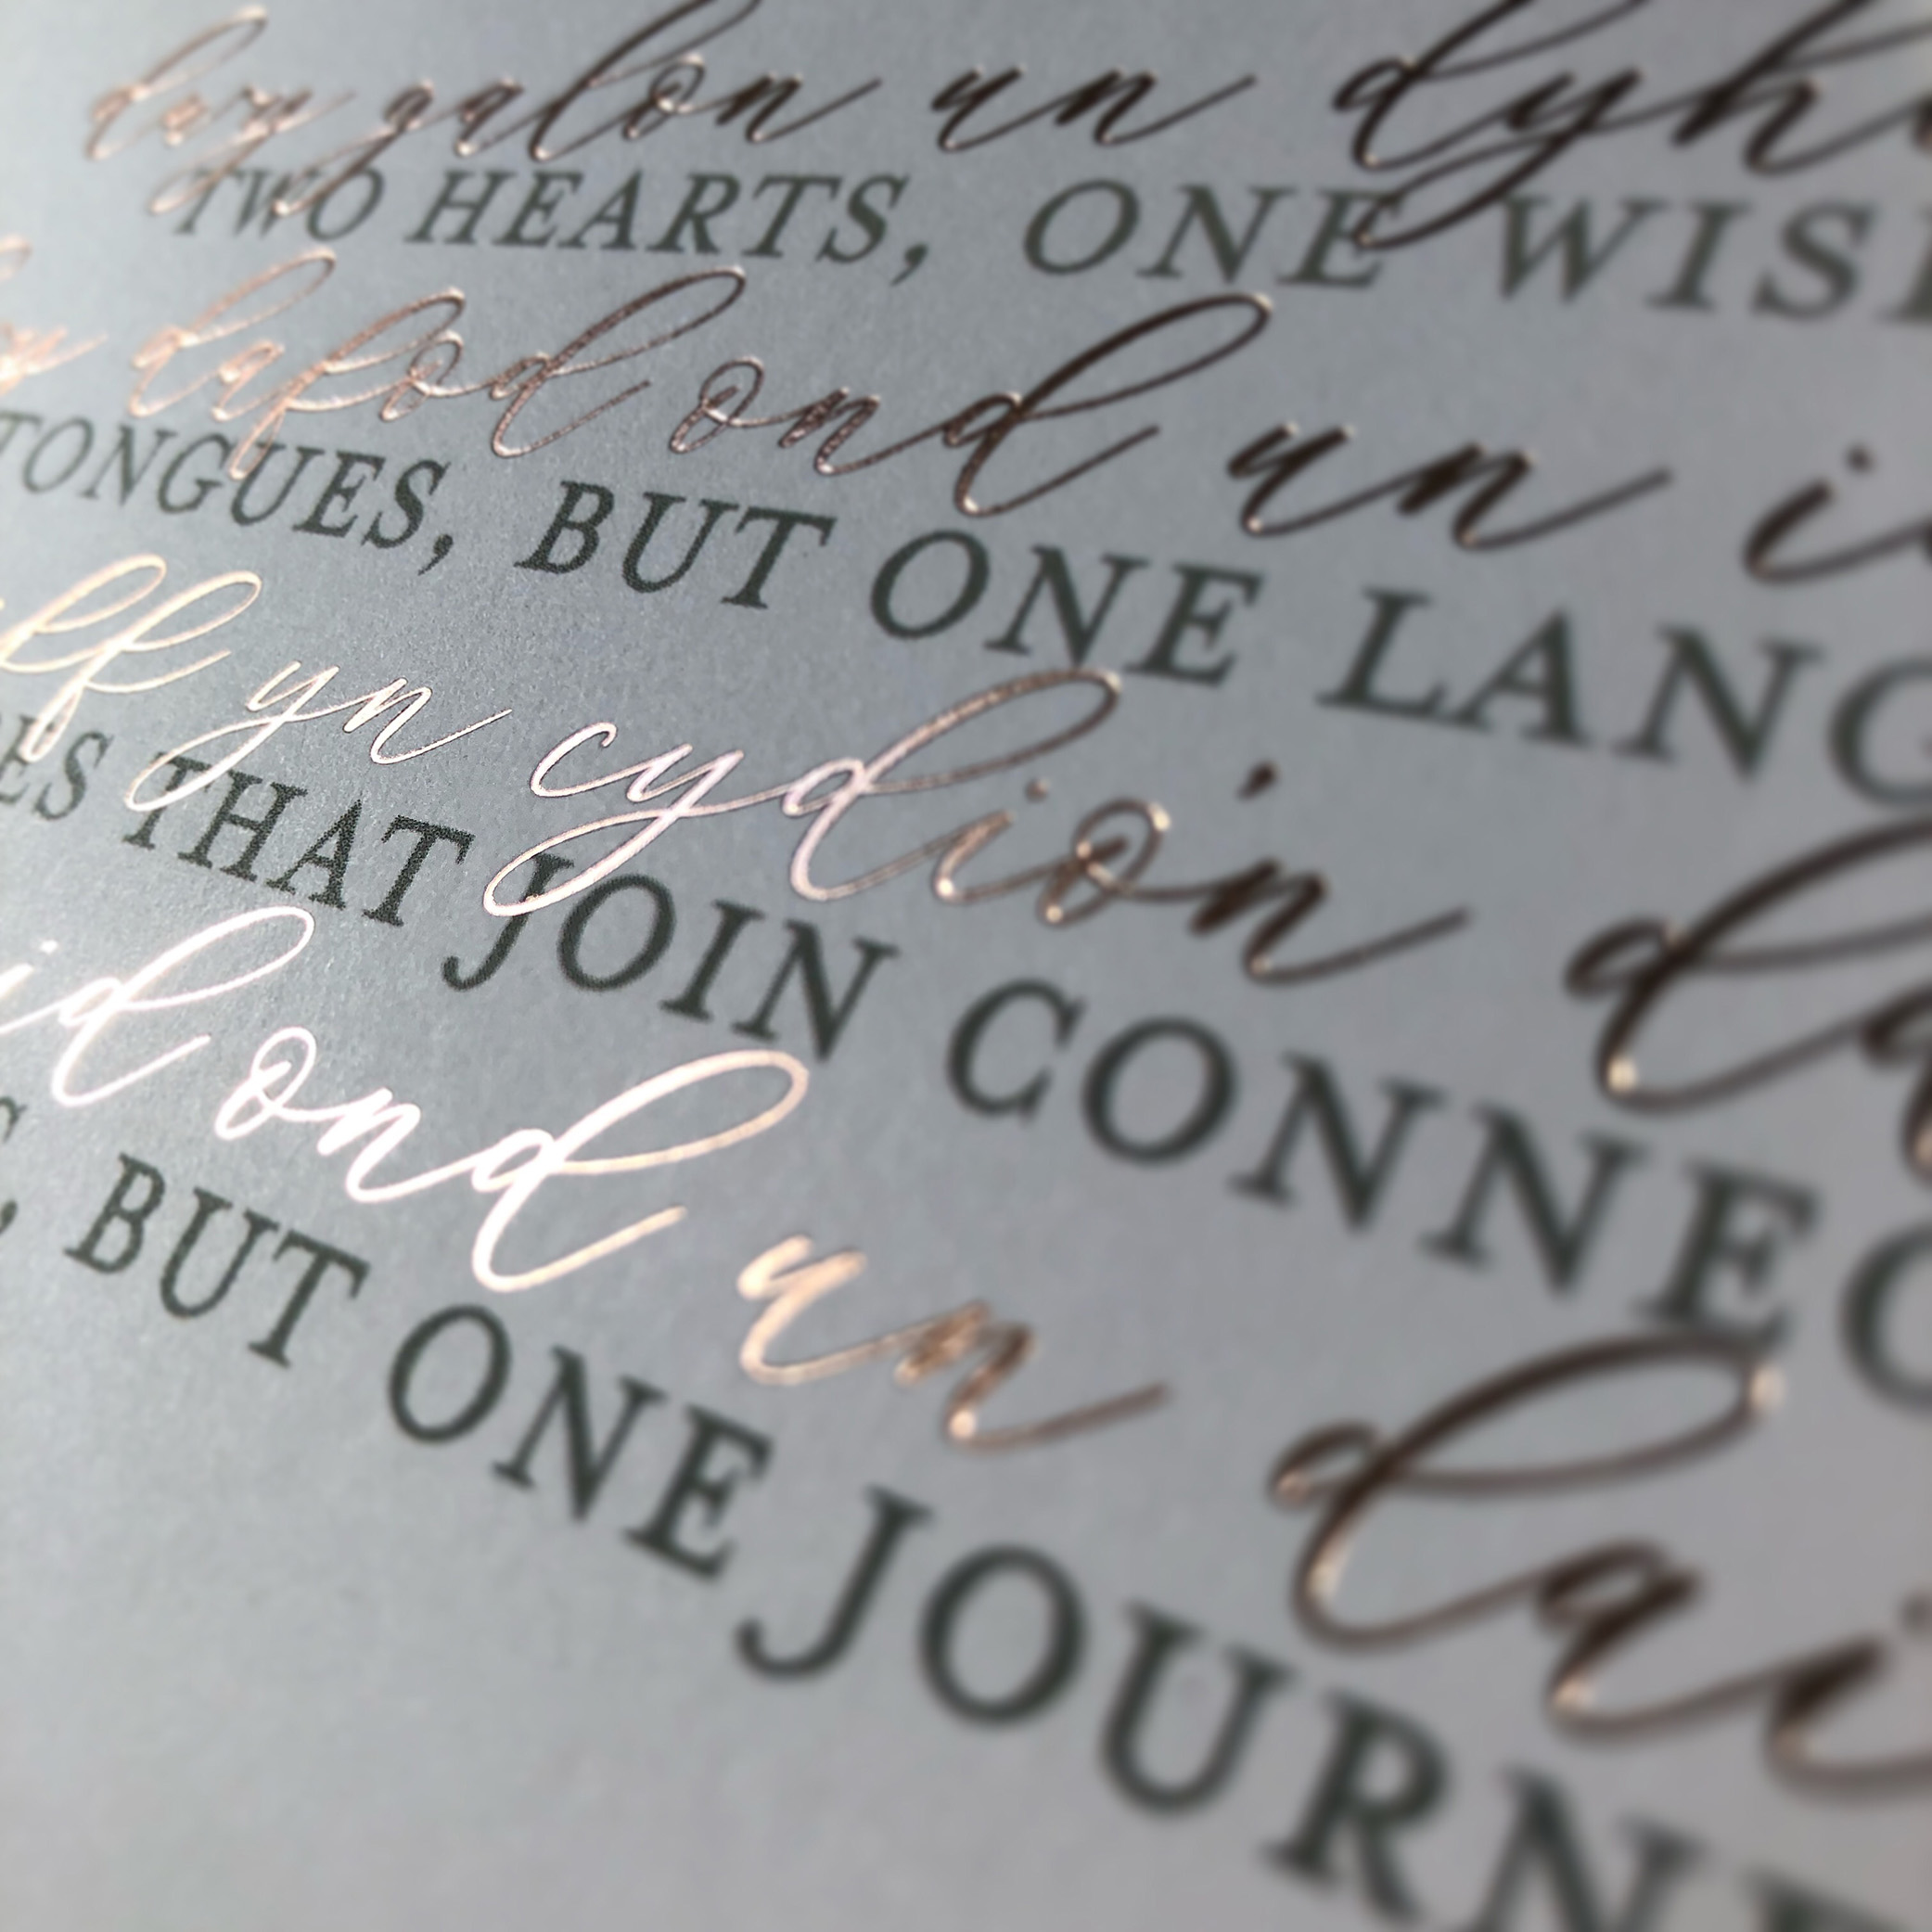 dwy galon un dyh
TWO HEARTS, ONE WIS
dafod ond un i
TONGUES, BUT ONE LANG
yn cydio'n
THAT JOIN CONNEC
ond un dai
BUT ONE JOURNE